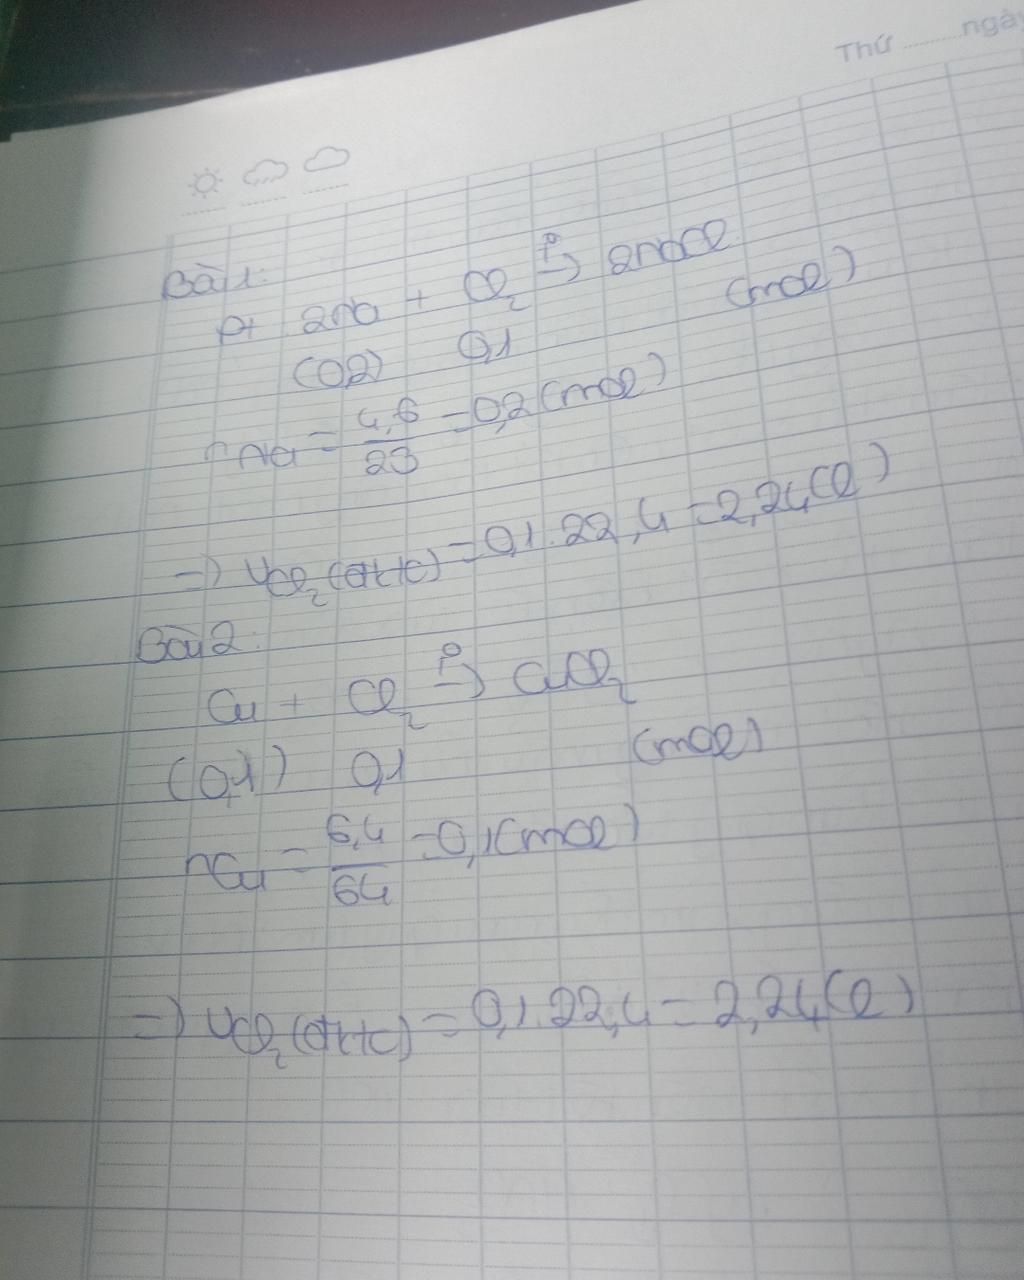 Thứ ........ ngày
Bài 1:
Pt 2Na + Cl₂ t°→ 2NaCl
(0,2) 0,1 (mol)
nNa = 4,6/23 = 0,2 (mol)
=> VCl₂ (đktc) = 0,1.22,4 = 2,24 (l)
Bài 2:
Cu + Cl₂ t°→ CuCl₂
(0,1) 0,1 (mol)
nCu = 6,4/64 = 0,1 (mol)
=> VCl₂ (đktc) = 0,1.22,4 = 2,24 (l)